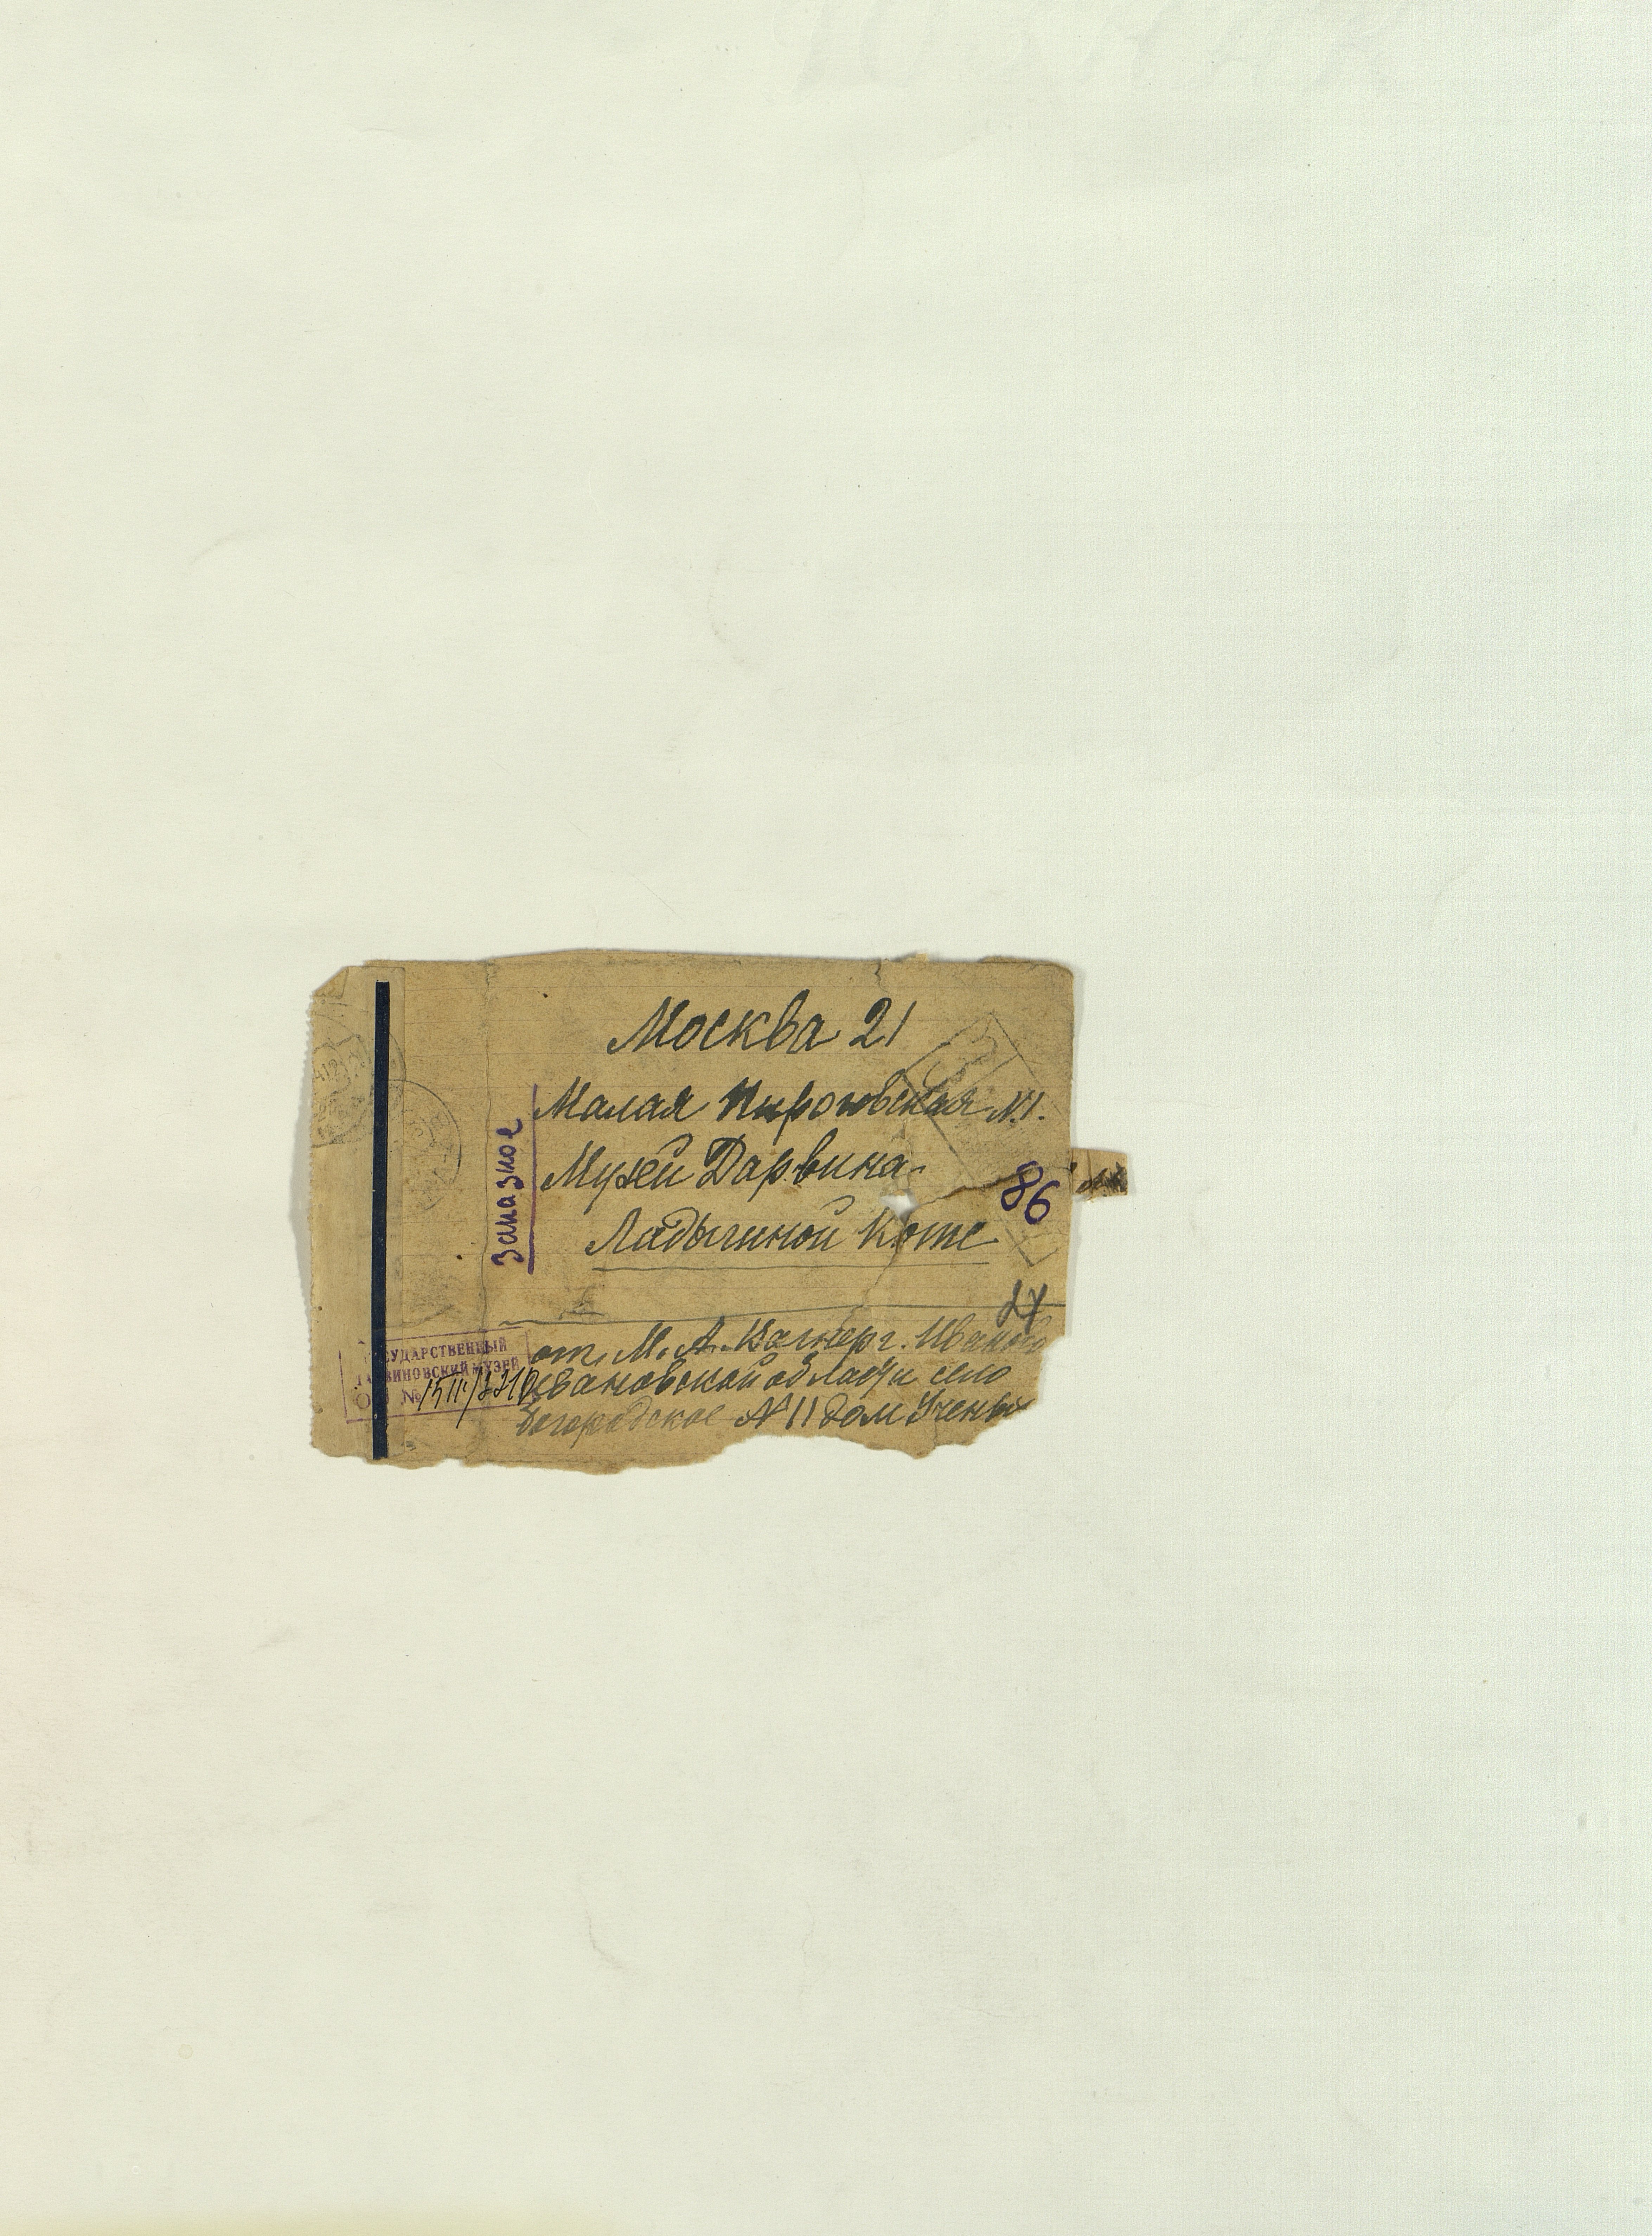 Москва 21
Малая Пироговская N.1.
Музей Дарвина.
Ладыгиной Коте
заказное
86
от М. А. г. Иваново
Ивановской области село
Богородское N 11 дом Ученых
ГОСУДАРСТВЕННЫЙ
ДАРВИНОВСКИЙ МУЗЕЙ
№